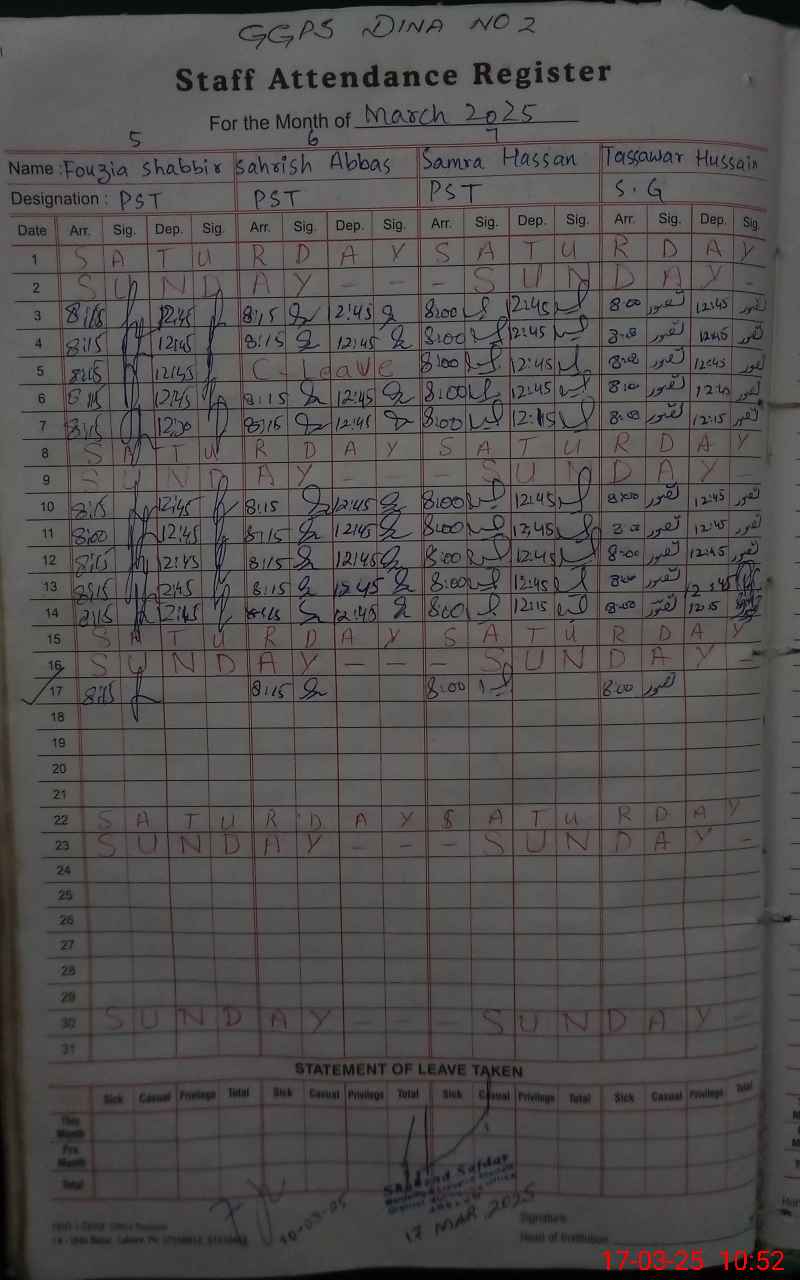 GGPS DINA NO 2
Staff Attendance Register
For the Month of March 2025
5 6 7
Name : Fouzia Shabbir Sahrish Abbas Samra Hassan Tassawar Hussain
Designation : PST PST PST S.G
Date Arr. Sig. Dep. Sig. Arr. Sig. Dep. Sig. Arr. Sig. Dep. Sig. Arr. Sig. Dep. Sig.
1 S A T U R D A Y S A T U R D A Y
2 S U N D A Y - - - S U N D A Y -
3 8:15 12:45 8:15 12:45 8:00 12:45 8:00 تصور 12:45 تصور
4 8:15 12:45 8:15 12:45 8:00 12:45 8:00 تصور 12:45 تصور
5 8:15 12:45 C - Leave 8:00 12:45 8:00 تصور 12:45 تصور
6 8:15 12:45 8:15 12:45 8:00 12:45 8:00 تصور تصور
7 8:15 8:15 12:45 8:00 12:15 8:00 تصور 12:15 تصور
8 S A T U R D A Y S A T U R D A Y
9 S U N D A Y - - - S U N D A Y -
10 8:15 12:45 8:15 12:45 8:00 12:45 8:00 تصور 12:45 تصور
11 8:00 12:45 8:15 12:45 8:00 12:45 8:00 تصور 12:45 تصور
12 8:15 12:45 8:15 12:45 8:00 12:45 8:00 تصور 12:45 تصور
13 8:15 2:45 8:15 12:45 8:00 12:45 8:00 تصور 12:45
14 8:15 12:45 8:15 12:45 8:00 12:15 8:00 تصور 12:15
15 S A T U R D A Y S A T U R D A Y
16 S U N D A Y - - - S U N D A Y -
17 8:15 8:15 8:00 8:00 تصور
18
19
20
21
22 S A T U R D A Y S A T U R D A Y
23 S U N D A Y - - - S U N D A Y -
24
25
26
27
28
29
30 S U N D A Y - - - S U N D A Y -
31
STATEMENT OF LEAVE TAKEN
Sick Casual Privilege Total Sick Casual Privilege Total Sick Casual Privilege Total Sick Casual Privilege Total
This Month
Pre Month
Total
Shahzad Safdar
10-03-25
17 MAR 2025
Signature
Head of Institution
17-03-25 10:52